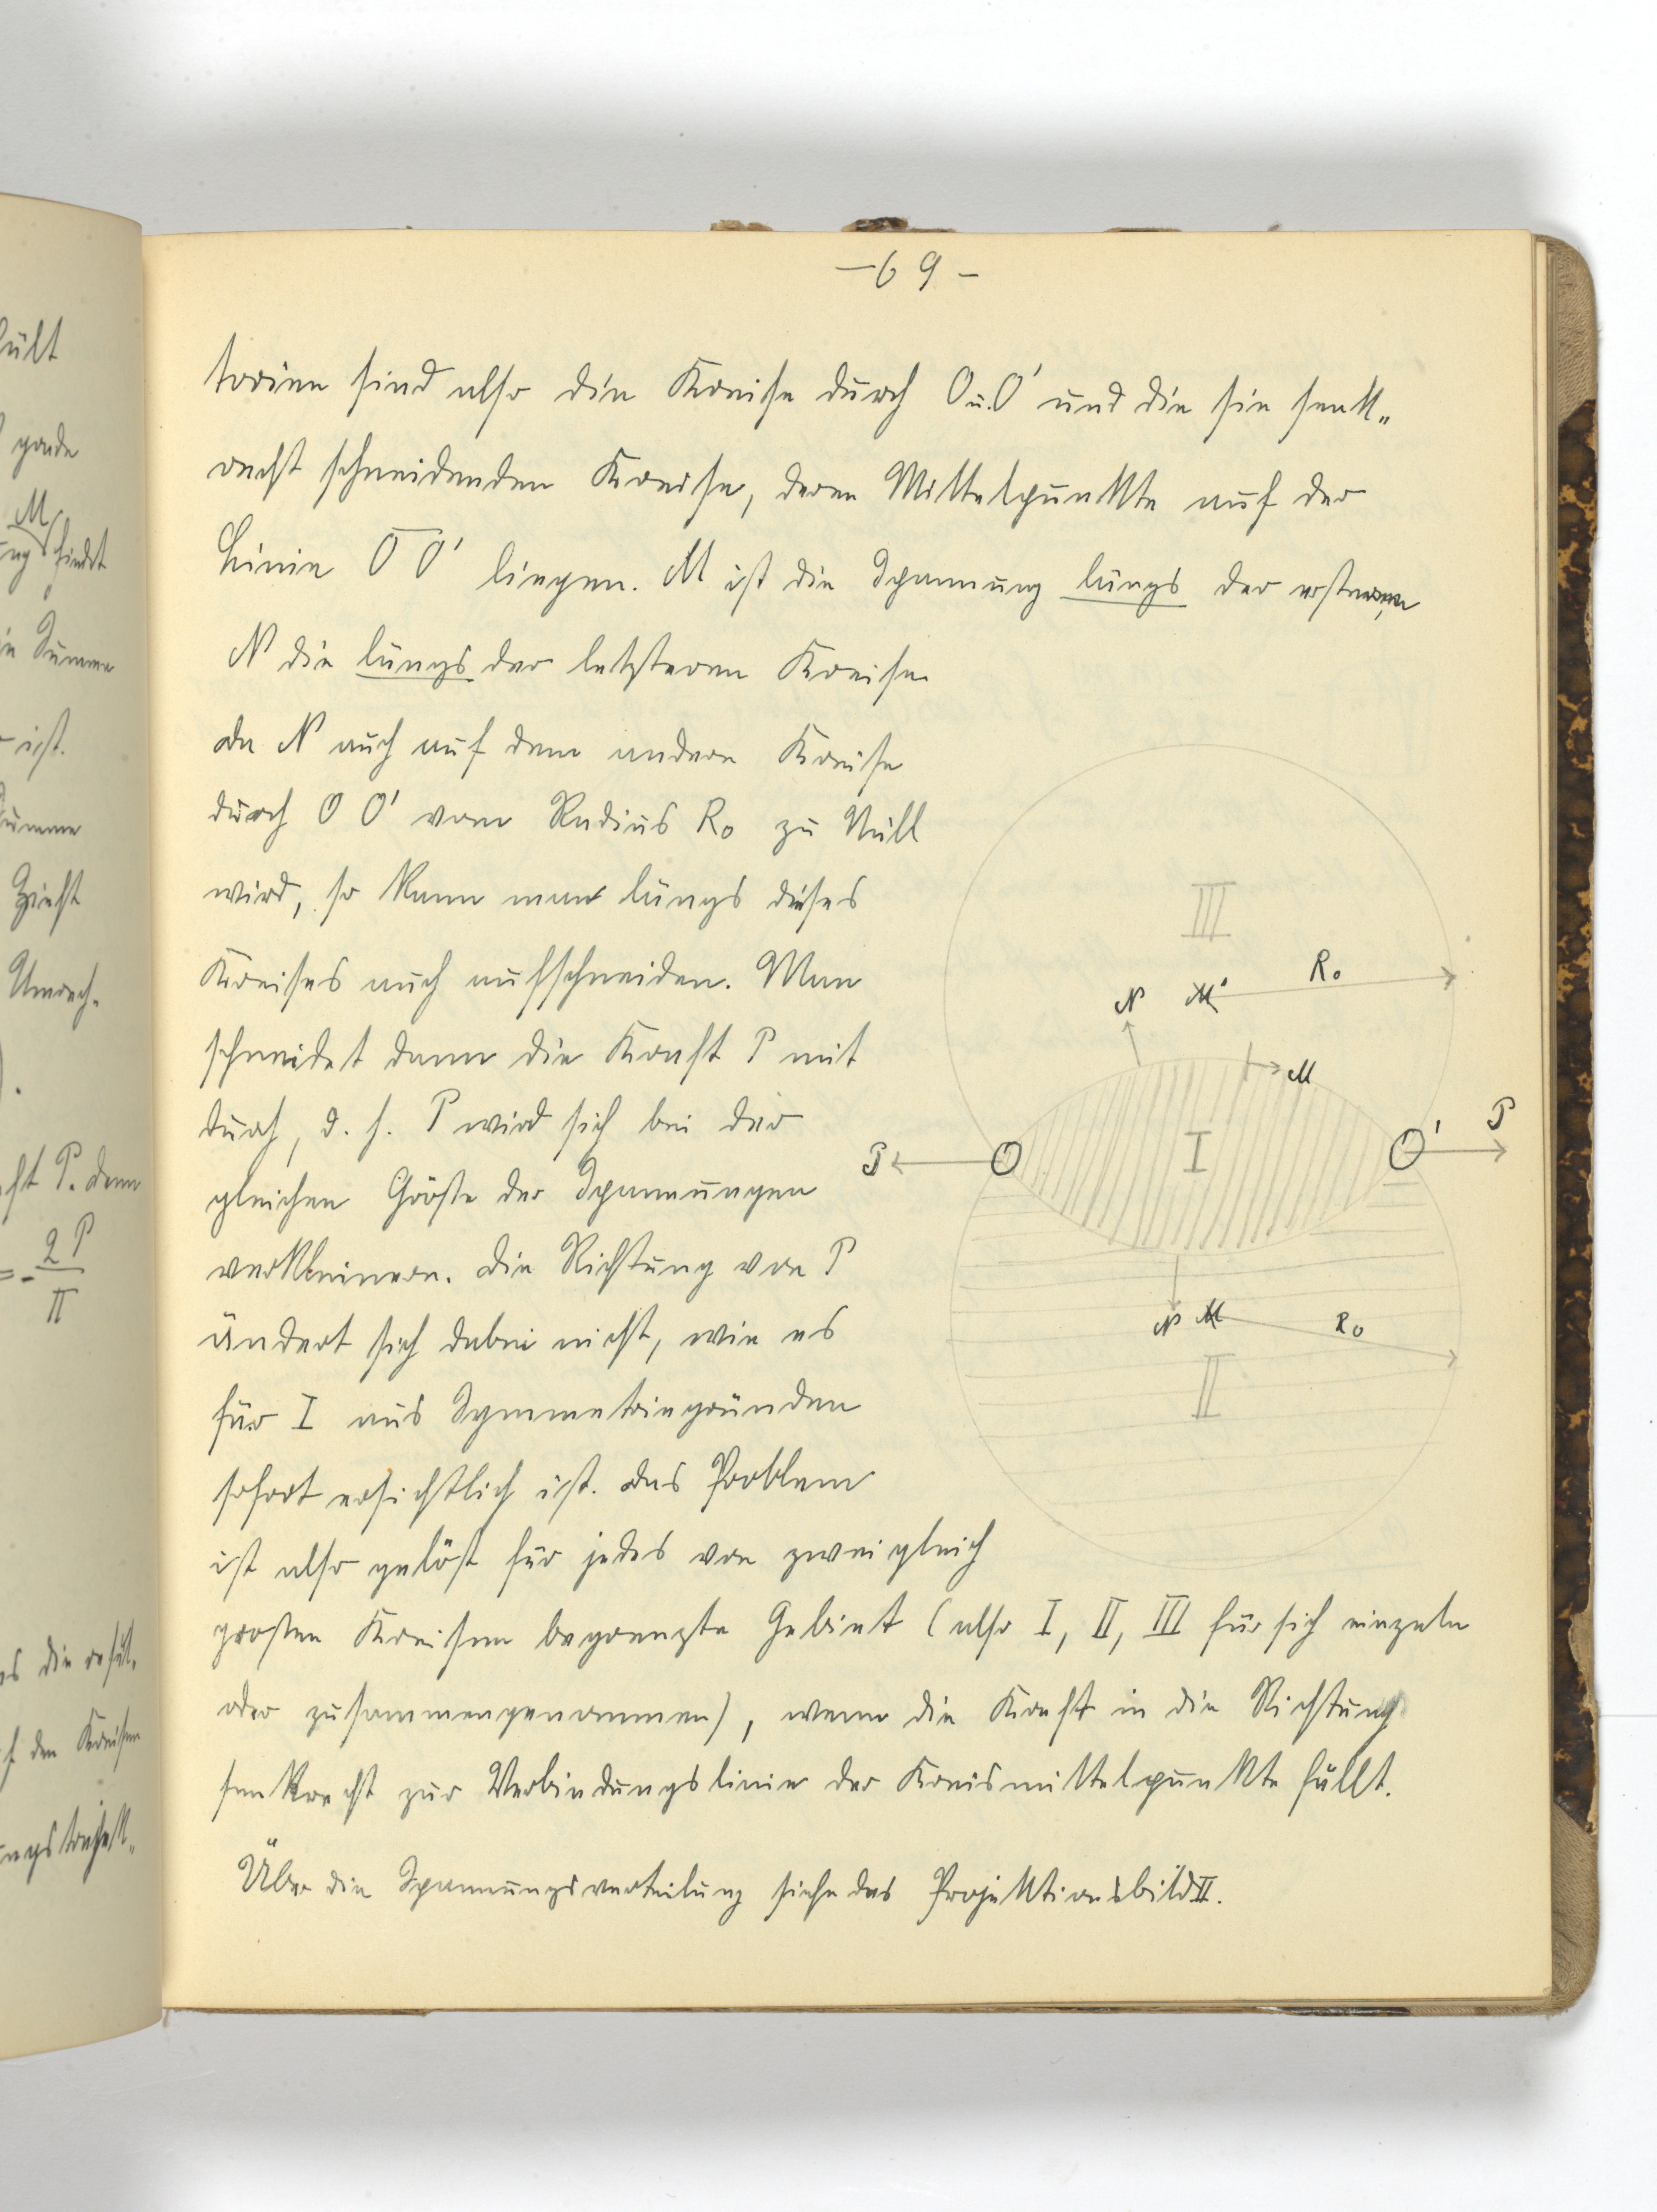 - 69 -
torien sind also die Kreise durch O u. O' und die sie senk„
recht schneidenden Kreise, deren Mittelpunkte auf der
Linie O O' liegen. M ist die Spannung längs der ersteren,
N die längs der letzteren Kreise.
Da N auch auf dem andern Kreise
durch O O' vom Radius R₀ zu Null
wird, so kann man längs dieses
Kreises auch aufschneiden. Man
schneidet dann die Kraft P mit
durch, d. h. P wird sich bei der
gleichen Größe der Spannungen
verkleinern. Die Richtung von P
ändert sich dabei nicht, wie es
für I aus Symmetriegründen
sofort ersichtlich ist. Das Problem
ist also gelöst für jedes von zwei gleich
großen Kreisen begrenzte Gebiet (also I, II, III für sich einzeln
oder zusammengenommen), wenn die Kraft in die Richtung
senkrecht zur Verbindungslinie der Kreismittelpunkte fällt.
Über die Spannungsverteilung siehe das Projektionsbild II.
III
R₀
N
M'
M
P
O
I
O'
P
N
M
R₀
II
ült
M
findet
Summe
ist.
Zieht
P. denn
= - 2P
π
den Kreisen